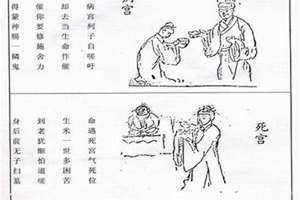 病宫
病宫列子自嗟吁
却去当生命作催
催你要修施舍力
得蒙神赐一憐鬼
死宫
命遇死宫气死位
生米一世多困苦
到老犹怕道嗟
身后前无子扫墓